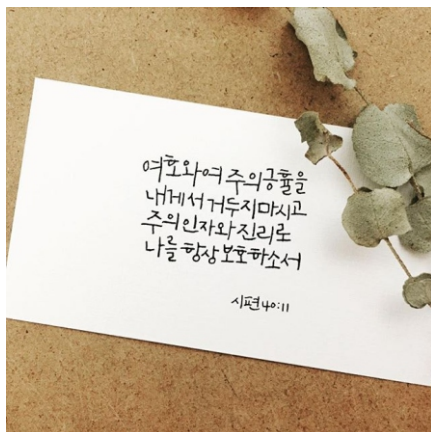 여호와여 주의긍휼을
내게서 거두지마시고
주의인자와 진리로
나를 항상 보호하소서
시편 40:11